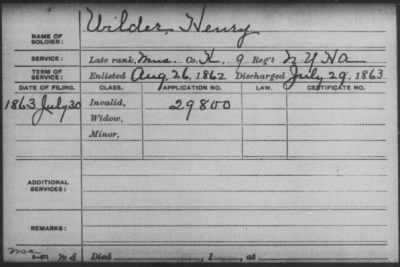 NAME OF SOLDIER: Wilder, Henry
SERVICE: Late rank, Mus. Co. K, 9 Reg't N Y HA
TERM OF SERVICE: Enlisted Aug. 26, 1862 Discharged July 29, 1863
DATE OF FILING. CLASS. APPLICATION NO. LAW. CERTIFICATE NO.
1863 July 30 Invalid, 29800
Widow,
Minor,
ADDITIONAL SERVICES:
REMARKS:
Died , 1 , at